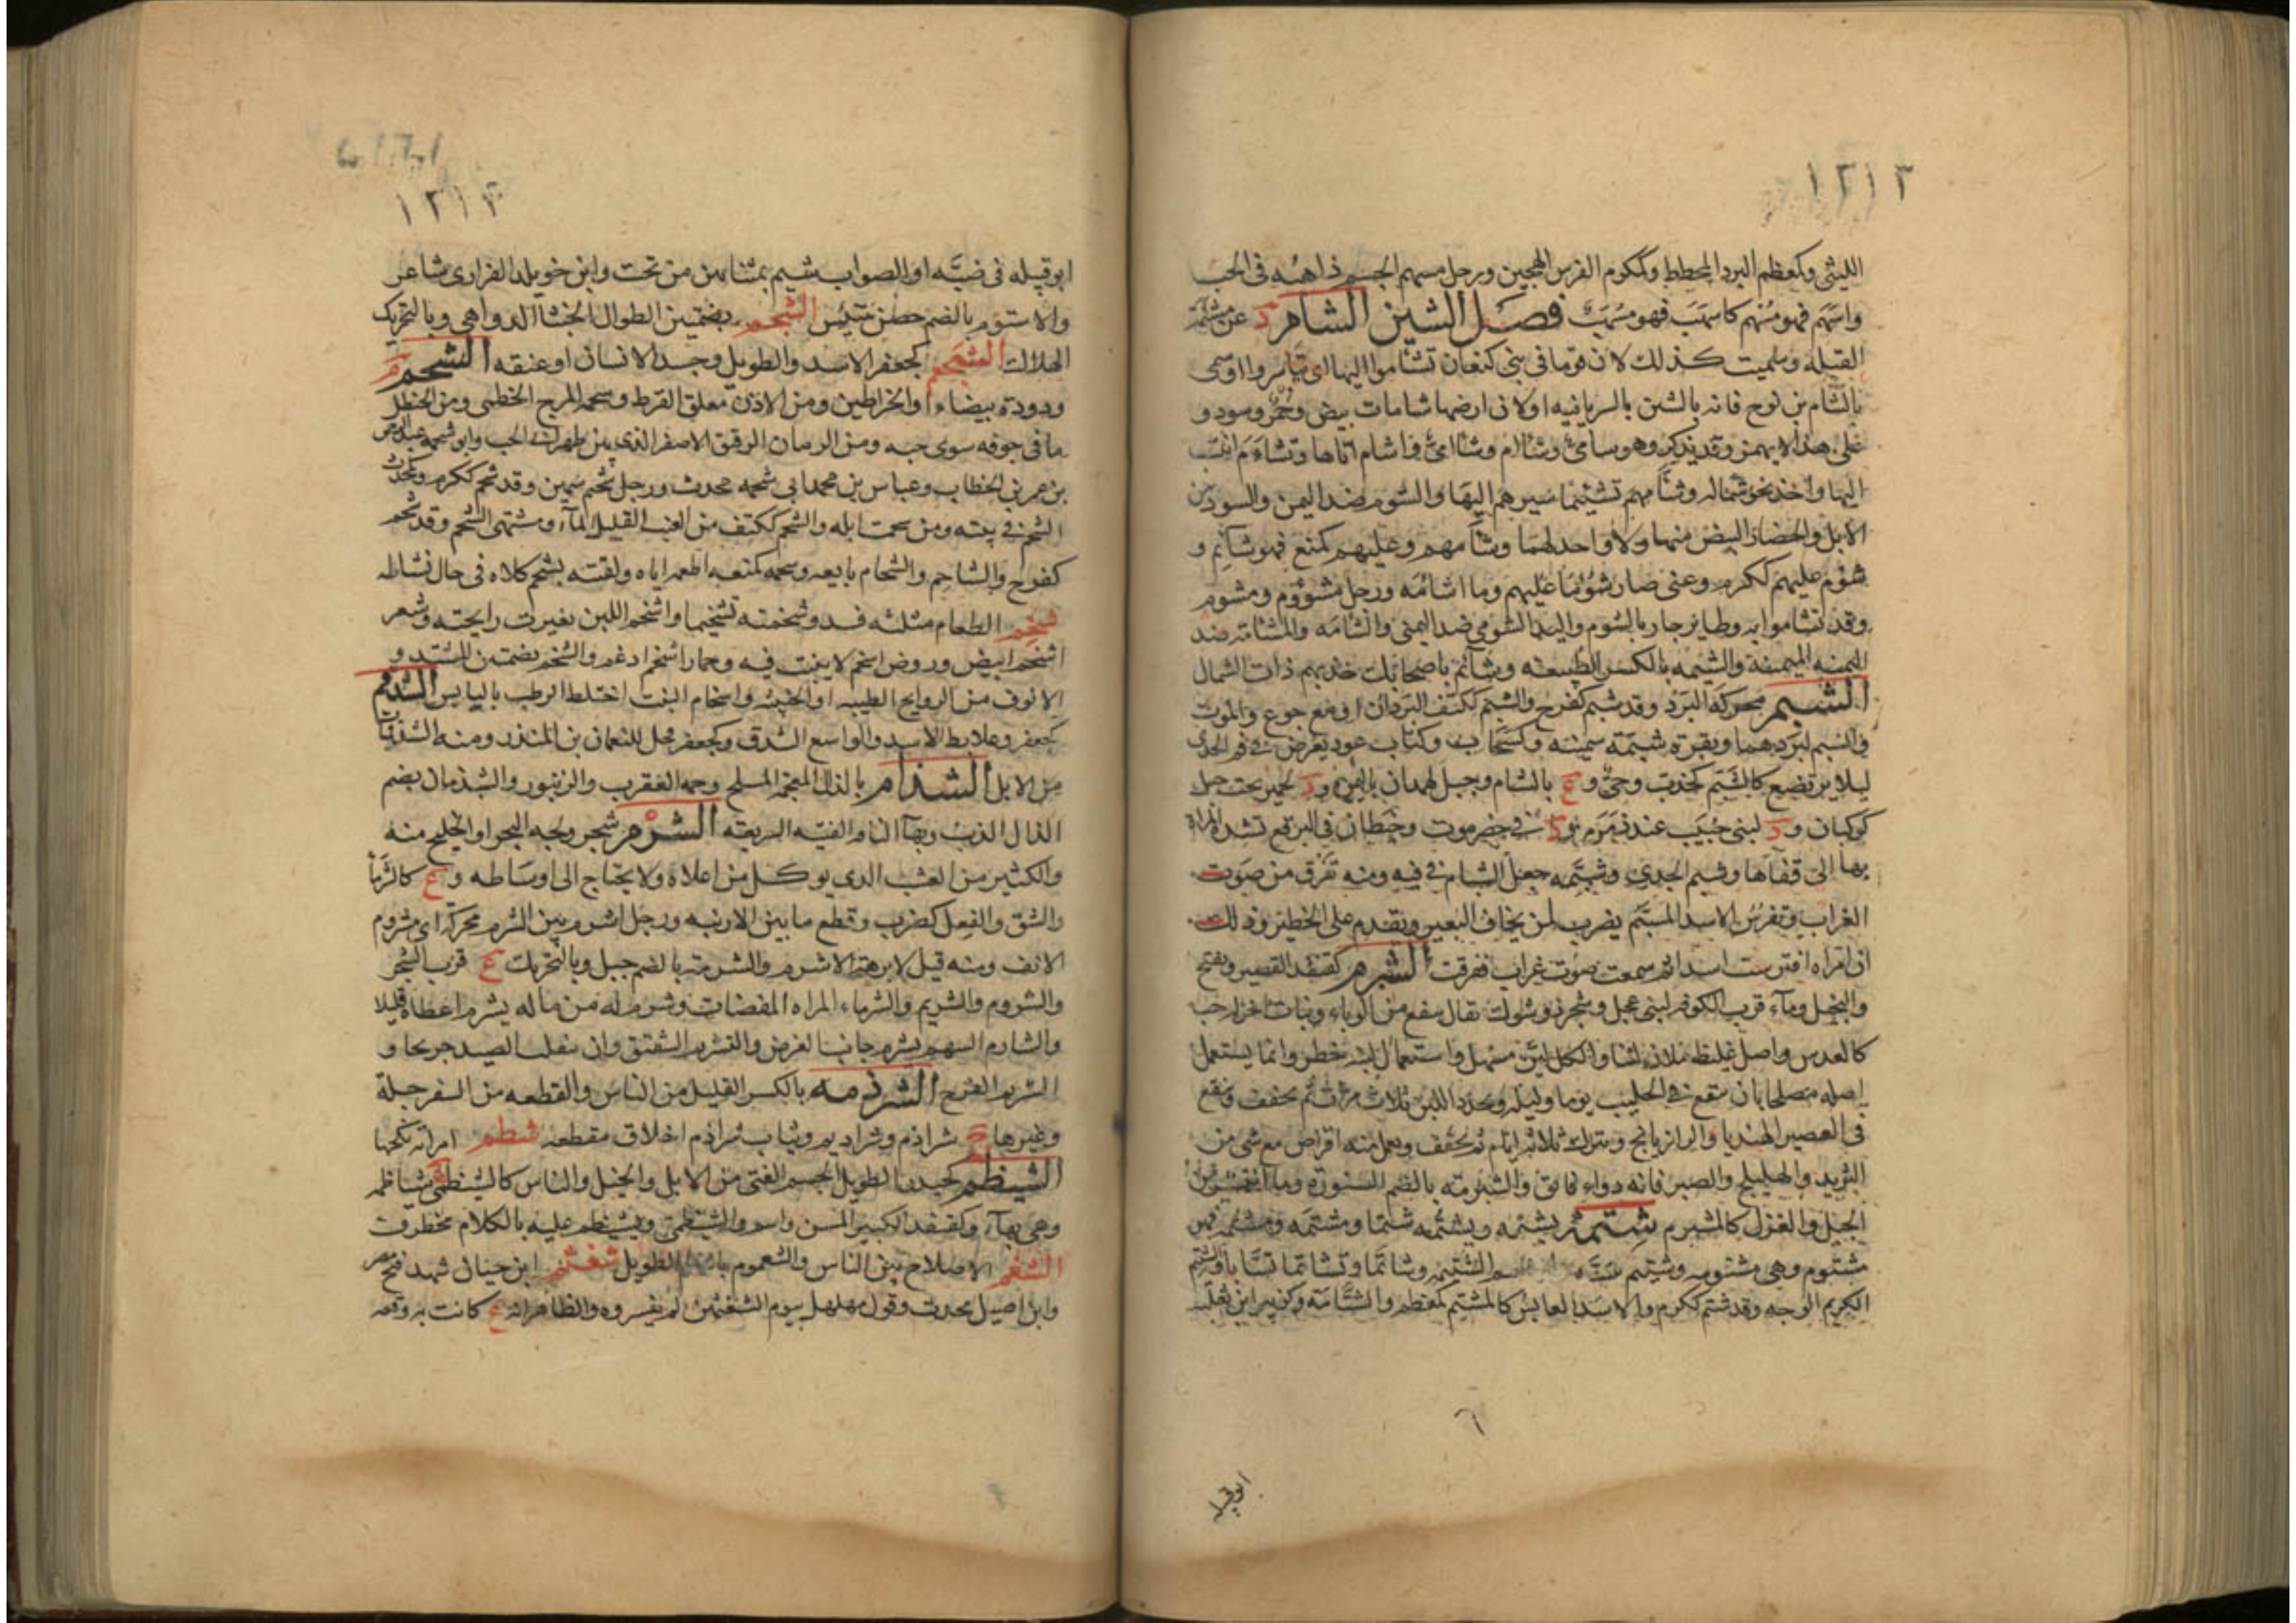 ١٢١٣
الليثى وكمعظم البرد المخطط وككوم الفرس الهجين ورجل مسهم الجسم ذاهبه فى الحب
واسهم فهو مسهم كاسهب فهو مسهب فصل الشين الشام د عن مشئمة
القبله وسميت كذلك لان قوما فى بنى كنعان تشاموا اليها اى تياسروا اوسمى
بالشام بن نوح فانه بالشين بالسريانيه اولان ارضها شامات بيض وحمر وسود و
على هذا لا يهمز وقد يذكر وهو سامى وشاام وشاامى واشام اتاها وتشاءم انتسب
اليها واخذ نحو شماله وشأمهم تشئيما سيرهم اليها والشوم ضد اليمن والسود من
الابل والحضار البيض منها ولا واحد لهما وشأمهم وعليهم كمنع فهو شائم و
شؤم عليهم ككرم وعنى صار شؤما عليهم وما اشأمه ورجل مشؤوم ومشوم
وقد تشاموا به وطاير جار بالشوم واليد الشومى ضد اليمنى والشامه والمشامة ضد
اليمنه الميمنة والشيمه بالكسر الطبيعة وشائم باصحابك خذ بهم ذات الشمال
الشبم محركة البرد وقد شبم كفرح والشبم ككتف البردان او مع جوع والموت
والسم لبردهما وبقرة شبمة سمينه وكسحاب وككتاب عود يعرض فى فم الجدى
ليلا يرتضع كالشبم كخدب وحى و ع بالشام وجبل لهمدان باليمن و د لحمير تحت جبل
كوكبان و د لبنى حبيب عند ذمرمر و د فى حضرموت وخيطان فى البرقع تشده المراة
بهما الى قفاها وشبم الجدى وشبمه جعل الشبام فى فيه ومنه تفرق من صوت
الغراب وتفرس الاسد المشبم يضرب لمن يخاف اليسير ويقدم على الخطير وذلك
ان امراه افترست اسدا ثم سمعت صوت غراب ففرقت الشبرم كقنفذ القصير ويفتح
والبخيل وماء قرب الكوفه لبنى عجل وشجر ذو شوك يقال ينفع من الوباء ونبات اخر له حب
كالعدس واصل غليظ ملان لبنا والكل مسهل واستعمال لبنه خطر وانما يستعمل
اصله مصلحا بان ينقع فى الحليب يوما وليله ويجدد اللبن ثلاث مرات ثم يجفف وينقع
فى العصير الهنديا والرازيانج ويترك ثلاثه ايام ثم يجفف ويعمل منه اقراص مع شى من
التربد والهليلج والصبر فانه دواء فائق والشبرمه بالضم السنورة وما انتشر من
الحبل والغزل كالمشبرم شتمه يشتمه ويشتمه شتما ومشتمه ومشتمه فهو
مشتوم وهى مشتومه وشتيم سبه والاسم الشتيمه وشاتما وتشاتما تسابا والشتيم
الكريه الوجه وقد شتم ككرم والاسد العابس كالمشتم كمعظم والشتامه وكزبير ابن ثعلبه
ابوقبيله
١٢١٤
ابوقبيله فى ضبه او الصواب شييم بمثناتين من تحت وابن خويلد الفزارى شاعر
والاستوم بالضم حصن بتنيس الشجم بضمتين الطوال الخبثاء الدواهى وبالتحريك
الهلاك الشجعم كجعفر الاسد والطويل وجسد الانسان او عنقه الشحم م
ودودة بيضاء والخراطين ومن الاذن معلق القرط وشحمه المرج الخطمى ومن الحنظل
ما فى جوفه سوى حبه ومن الرمان الرقيق الاصفر الذى بين ظهرانى الحب وابو شحمه عبد الرحمن
بن عمر بن الخطاب وعباس بن محمد ابى شحمه محدث ورجل شحيم سمين وقد شحم ككرم وكمحدث
الشحم فى بيته ومن سحمت ابله والشحم ككتف من العنب القليل الماء ومشتهى الشحم وقد شحم
كفرح والشاحم والشحام بايعه وشحمه كمنعه اطعمه اياه ولقيته بشحم كلاه فى حال نشاطه
شخم الطعام مثلثه فسد وشخمته تشخيما واشخم اللبن تغيرت رايحته وشعر
اشخم ابيض وروض اشخم لا نبت فيه وحمار اشخم ادغم والشخم بضمتين المستد و
الانوف من الروايح الطيبه او الخبيثه واشخام النبت اختلط الرطب باليابس الشدقم
كجعفر وعلابط الاسد والواسع الشدق وكجعفر فحل للنعمان بن المنذر ومنه الشدقيات
من الابل الشذام بالذال المعجمه الملح وحمه العقرب والزنبور والشيذمان بضم
الذال الذئب وبهاء الناقه الفتيه السريعه الشرم شجر ولجه البحر او الخليج منه
والكثير من العشب الذى يوكل من اعلاه ولا يحتاج الى اوساطه و ع كالثرما
والشق والفعل كضرب وقطع ما بين الارنبه ورجل اشرم بين الشرم محركه اى مشروم
الانف ومنه قيل لابرهه الاشرم والشرمه بالضم جبل وبالتحريك ع قرب الشحر
والشروم والشريم والشرماء المراه المفضات وشرم له من ماله يشرم اعطاه قليلا
والشارم السهم يشرم جانب الغرض والتشريم التشقق وان ينفلت الصيد جريحا و
الشريم الفرج الشرذمه بالكسر القليل من الناس والقطعه من السفرجلة
وغيرها ج شراذم وشراذيم وثياب شراذم اخلاق مقطعه شطم امراته نكحها
الشيظم كحيدر الطويل الجسيم الفتى من الابل والخيل والناس كالشيظمى ج شياظمه
وهى بهاء وكقنفذ الكبير المسن واسد والشيظمى ويتشيظم عليه بالكلام يخطرف
الشغم الاصلاح بين الناس والشعموم بالضم الطويل شعثم ابن حيان شهد فتح مصر
وابن اصيل محدث وقول مهلهل بيوم الشعثمين لم يفسروه والظاهر انه ع كانت به وقعه